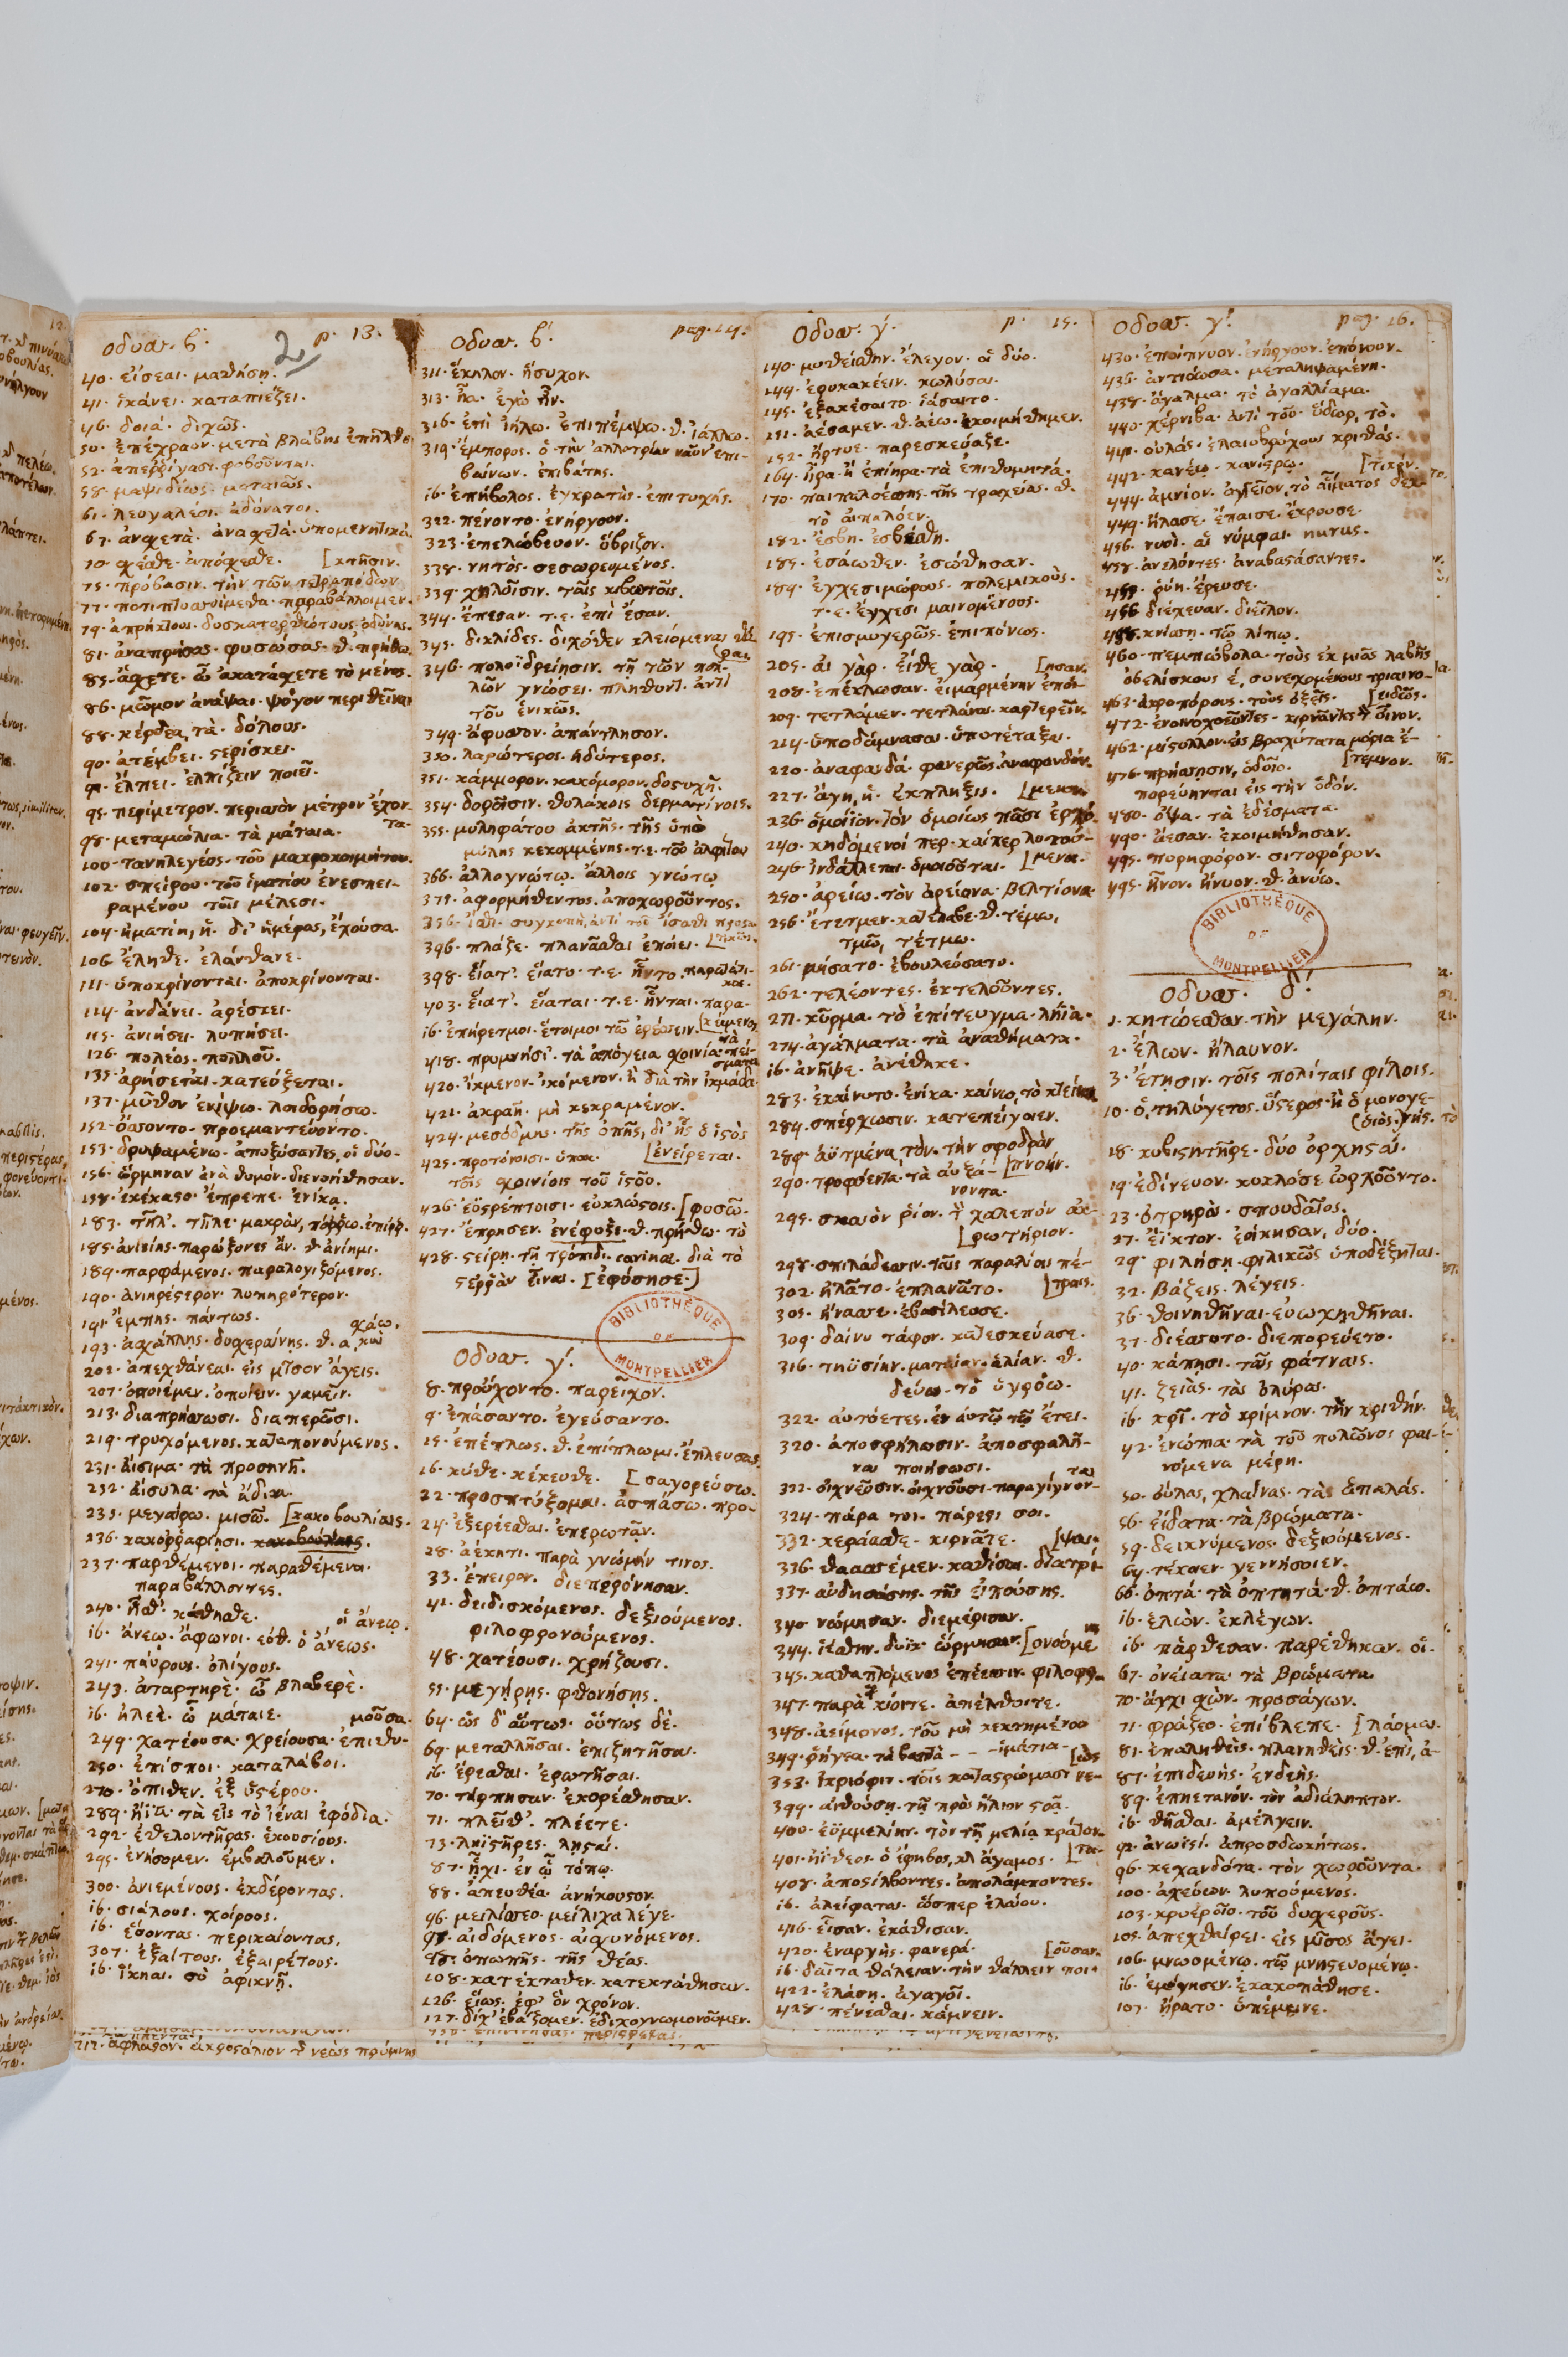 Οδυσ. β'. 2 p. 13.
40. εἴσεαι. μαθήσῃ.
41. ἱκάνει. καταπιέζει.
46. δοιά. διχῶς.
50. ἐπέχραον. μετὰ βλάβης ἐπῆλθο
52. ἀπερρίγασι. φοβοῦνται.
58. μαψιδίως. ματαίως.
61. λευγαλέοι. ἀδύνατοι.
63. ἀνσχετὰ. ἀνασχετά. ὑπομενητικά.
70. σχέσθε. ἀπόσχεσθε. [κτῆσιν.
75. πρόβασιν. τὴν τῶν τετραπόδων
77. ποτιπτυσσοίμεθα. παραβάλλοιμεν.
79. ἀπρήκτους. δυσκατορθώτους ὀδύνας.
81. ἀναπρήσας. φυσώσας. θ. πρήθω.
85. ἄσχετε. ὦ ἀκατάσχετε τὸ μένος.
86. μῶμον ἀνάψαι. ψόγον περιθεῖναι
88. κέρδεα, τὰ. δόλους.
90. ἀτέμβει. στερίσκει.
91. ἔλπει. ἐλπίζειν ποιεῖ.
95. περίμετρον. περισσὸν μέτρον ἔχοντα.
98. μεταμώλια. τὰ μάταια.
100. τανηλεγέος. τοῦ μακροκοιμήτου.
102. σπείρου. τοῦ ἱματίου ἐνεσπει-
ραμένου τοῖς μέλεσι.
104. ἠματίη, ἡ. δι' ἡμέρας, ἔχουσα.
106. ἔληθε. ἐλάνθανε.
111. ὑποκρίνονται. ἀποκρίνονται.
114. ἁνδάνει. ἀρέσκει.
115. ἀνιήσει. λυπήσει.
126. πολέος. πολλοῦ.
135. ἀρήσεται. κατεύξεται.
137. μῦθον ἐνίψω. λοιδορήσω.
152. ὄσσοντο. προεμαντεύοντο.
153. δρυψαμένω. ἀποξύσαντες, οἱ δύο.
156. ὥρμηναν ἀνὰ θυμόν. διενοήθησαν.
158. ἐκέκαστο. ἔπρεπε. ἐνίκα.
183. τῆλ'. τῆλε. μακρὰν, πόρρω. ἐπίρρ.
185. ἀνιείης. παρώξυνες ἄν. θ. ἀνίημι.
189. παρφάμενος. παραλογιζόμενος.
190. ἀνιηρέστερον. λυπηρότερον.
191. ἔμπης. πάντως. χάω.
193. ἀσχάλλῃς. δυσχεραίνῃς. θ. α, καὶ
202. ἀπεχθάνεαι. εἰς μῖσον ἄγεις.
207. ὀπυιέμεν. ὀπυίειν. γαμεῖν.
213. διαπρήσσωσι. διαπερῶσι.
219. τρυχόμενος. καταπονούμενος.
231. αἴσιμα. τὰ προσηνῆ.
232. αἴσυλα. τὰ ἄδικα.
235. μεγαίρω. μισῶ. [κακοβουλίαις.
236. κακορραφίησι.
237. παρθέμενοι. παραθέμενοι.
παραβάλλοντες.
240. ἧσθ'. κάθησθε. οἱ ἄνεῳ.
ib. ἄνεῳ. ἄφωνοι. εὐθ. ὁ ἄνεως.
241. παύρους. ὀλίγους.
243. ἀταρτηρέ. ὦ βλαβερὲ.
ib. ἠλεέ. ὦ μάταιε. μοῦσα.
249. χατέουσα. χρείουσα. ἐπιθυ-
250. ἐπίσποι. καταλάβοι.
270. ὄπιθεν. ἐξ ὑστέρου.
289. ἤϊα. τὰ εἰς τὸ ἰέναι ἐφόδια.
292. ἐθελοντῆρας. ἑκουσίους.
295. ἐνήσομεν. ἐμβαλοῦμεν.
300. ἀνιεμένους. ἐκδέροντας.
ib. σιάλους. χοίρους.
ib. εὕοντας. περικαίοντας.
307. ἐξαίτους. ἐξαιρέτους.
ib. ἵκηαι. σὺ ἀφικνῇ.
Οδυσ. β'. pag. 14.
311. ἕκηλον. ἥσυχον.
313. ἦα. ἐγὼ ἦν.
316. ἐπὶ ἰήλω. ἐπιπέμψω. θ. ἰάλλω.
319. ἔμπορος. ὁ τὴν ἀλλοτρίαν ναῦν ἐπι-
βαίνων. ἐπιβάτης.
ib. ἐπήβολος. ἐγκρατὴς. ἐπιτυχής.
322. πένοντο. ἐνήργουν.
323. ἐπελώβευον. ὕβριζον.
338. νητὸς. σεσωρευμένος.
339. χηλοῖσιν. ταῖς κιβωτοῖς.
344. ἔπεσαν. τ.ε. ἐπὶ ἔσαν.
345. δικλίδες. διχόθεν κλειόμεναι θύ-
(ραι
346. πολυϊδρείῃσιν. τῇ τῶν πολ-
λῶν γνώσει. πληθυντ. ἀντὶ
τοῦ ἑνικῶς.
349. ἄφυσσον. ἀπάντλησον.
350. λαρώτερος. ἡδύτερος.
351. κάμμορον. κακόμορον. δυστυχῆ.
354. δοροῖσιν. θυλάκοις δερματίνοις.
355. μυληφάτου ἀκτῆς. τῆς ὑπὸ
μύλης κεκομμένης. τ.ε. τοῦ ἀλφίτου
366. ἀλλογνώτῳ. ἄλλοις γνώτῳ
375. ἀφορμηθέντος. ἀποχωροῦντος.
396. πλάζε. πλανᾶσθαι ἐποίει.
398. εἵατ'. εἵατο. τ.ε. ἧντο. παρατατι-
κος.
403. εἵατ'. εἵαται. τ.ε. ἧνται. παρα-
ib. ἐπήρετμοι. ἕτοιμοι τῷ ἐρέσσειν. [κείμενος
418. πρυμνήσι'. τὰ ἀπόγεια σχοινία. πεί-
σματα
420. ἴκμενον. ἱκόμενον. ἢ διὰ τὴν ἰκμάδα.
421. ἀκραῆ. μὴ κεκραμένον.
424. μεσόδμης. τῆς ὀπῆς, δι' ἧς ὁ ἱστὸς
425. προτόνοισι. [ἐνείρεται.
τοῖς σχοινίοις τοῦ ἱστοῦ.
426. ἐϋστρέπτοισι. εὐκλώστοις. [φυσῶ.
427. ἔπρησεν. ἐνέφυξε. θ. πρήθω. τὸ
428. στείρῃ. τῇ τρόπιδι. carinae. διὰ τὸ
στερρὰν εἶναι. [ἐφύσησε.]
BIBLIOTHÈQUE DE MONTPELLIER
Οδυσ. γ'.
8. προύχοντο. παρεῖχον.
9. ἐπάσαντο. ἐγεύσαντο.
15. ἐπέπλως. θ. ἐπίπλωμι. ἔπλευσας.
16. κύθε. κέκευθε. [σαγορεύσω.
22. προσπτύξομαι. ἀσπάσω. προ-
24. ἐξερέεσθαι. ἐπερωτᾷν.
28. ἀέκητι. παρὰ γνώμην τινος.
33. ἔπειρον. διεπερόνησαν.
41. δειδισκόμενος. δεξιούμενος.
φιλοφρονούμενος.
48. χατέουσι. χρῄζουσι.
55. μεγήρῃς. φθονήσῃς.
64. ὣς δ' αὔτως. οὕτως δὲ.
69. μεταλλῆσαι. ἐπιζητῆσαι.
ib. ἔρεσθαι. ἐρωτῆσαι.
70. τάρπησαν. ἐκορέσθησαν.
71. πλεῖθ'. πλέετε.
73. ληϊστῆρες. λῃσταί.
87. ἧχι. ἐν ᾧ τόπῳ.
88. ἀπευθέα. ἀνήκουστον.
96. μειλίσσεο. μείλιχα λέγε.
96. αἰδόμενος. αἰσχυνόμενος.
97. ὀπωπῆς. τῆς θέας.
108. κατέκταθεν. κατεκτάθησαν.
126. εἵως. ἐφ' ὃν χρόνον.
127. δίχ' ἐβάζομεν. ἐδιχογνωμονοῦμεν.
Οδυσ. γ'. p. 15.
140. μυθείσθην. ἔλεγον. οἱ δύο.
144. ἐρυκακέειν. κωλύσαι.
145. ἐξακέσαιτο. ἰάσαιτο.
151. ἀέσαμεν. θ. ἀέω. ἐκοιμήθημεν.
152. ἤρτυε. παρεσκεύαζε.
164. ἦρα. ἢ ἐπίηρα. τὰ ἐπιθυμητά.
170. παιπαλοέσσης. τῆς τραχείας. θ.
τὸ παιπαλόεν.
182. ἔσβη. ἐσβέσθη.
185. ἐσάωθεν. ἐσώθησαν.
189. ἐγχεσιμώρους. πολεμικοὺς.
τ.ε. ἔγχεσι μαινομένους.
195. ἐπισμυγερῶς. ἐπιπόνως.
205. αἲ γὰρ. εἴθε γὰρ. [ησαν.
208. ἐπέκλωσαν. εἱμαρμένην ἐποί-
209. τετλάμεν. τετλάναι. καρτερεῖν.
214. ὑποδάμνασαι. ὑποτέταξαι.
220. ἀναφανδά. φανερῶς. ἀναφανδόν.
227. ἄγη, ἡ. ἐκπληξις.
236. ὁμοίϊον. τὸν ὁμοίως πᾶσι ἐρχό-
240. κηδόμενοί περ. καίπερ λυπού-
246. ἰνδάλλεται. ὁμοιοῦται. [μενοι.
250. ἀρείω. τὸν ἀρείονα. βελτίονα
256. ἔτετμεν. κατέλαβε. θ. τέμω,
τμῶ, τέτμω.
261. μήσατο. ἐβουλεύσατο.
262. τελέοντες. ἐκτελοῦντες.
271. κῦρμα. τὸ ἐπίτευγμα. ληΐα.
274. ἀγάλματα. τὰ ἀναθήματα.
ib. ἀνῆψε. ἀνέθηκε.
283. ἐκαίνυτο. ἐνίκα. καίνω, τὸ κτείνω
284. σπέρχωσιν. κατεπείγοιεν.
289. ἀϋτμένα, τὸν. τὴν σφοδρὰν
290. τροφόεντα. τὰ αὐξα- [πνοήν.
νοντα.
295. σκαιὸν ῥίον. τ' χαλεπὸν ἀκ-
[ρωτήριον.
298. σπιλάδεσσιν. ταῖς παραλίοις πέ-
302. ἠλᾶτο. ἐπλανᾶτο. [τραις.
305. ἤνασσε. ἐβασίλευσε.
309. δαίνυ τάφον. κατεσκεύασε.
316. τηϋσίην. ματαίαν. ἁλίαν. θ.
δεύω. τὸ ὑγρόω.
322. αὐτόετες. ἐν αὐτῷ τῷ ἔτει.
320. ἀποσφήλωσιν. ἀποσφαλῆ-
ναι ποιήσωσι.
322. οἰχνεῦσιν. οἰχνοῦσι. παραγίγνον-
ται
324. πάρα τοι. πάρεστι σοι.
332. κεράασθε. κιρνᾶτε. [ψαι.
336. θαασσέμεν. καθίσαι. διατρί-
337. αὐδησάσης. τῆς εἰπούσης.
340. νώμησαν. διεμέρισαν.
344. ἱέσθην. δυϊκ. ὥρμησαν. [ονούμε
345. καθαπτόμενος ἐπέεσσιν. φιλοφρ
347. παρὰ κίοιτε. ἀπέλθοιτε.
348. ἀνείμονος. τοῦ μὴ κεκτημένου
349. ῥήγεα. τὰ βαπτὰ - - - ἱμάτια.
353. ἰκριόφιν. τοῖς καταστρώμασι νε-
399. αἰθούσῃ. τῇ πρὸς ἥλιον στοᾷ.
400. ἐϋμμελίην. τὸν τῇ μελίᾳ κράτον-
401. ἠΐθεος. ὁ ἔφηβος, καὶ ἄγαμος. [τα.
408. ἀποστίλβοντες. ἀπολάμποντες.
ib. ἀλείφατος. ὥσπερ ἐλαίου.
416. εἷσαν. ἐκάθισαν.
420. ἐναργὴς. φανερά. [οῦσαν.
ib. δαῖτα θάλειαν. τὴν θάλλειν ποι-
422. ἐλάσῃ. ἀγαγοῖ.
428. πένεσθαι. κάμνειν.
Οδυσ. γ'. pag. 16.
430. ἐποίπνυον. ἐνήργουν. ἐπόνουν.
436. ἀντιόωσα. μεταληψαμένη.
438. ἄγαλμα. τὸ ἀγαλλίαμα.
440. χέρνιβα. ἀντὶ τοῦ ὕδωρ, τὸ.
441. οὐλάς. ἐλαιοβρόχους κριθάς.
442. κανέῳ. κανίστρῳ. [τικὸν.
444. ἀμνίον. ἀγγεῖον, τὸ αἵματος δεκ-
449. ἤλασε. ἔπαισε. ἔκρουσε.
456. νυοὶ. αἱ νύμφαι. nurus.
458. ἀνελόντες. ἀναβαστάσαντες.
455. ῥύη. ἔρευσε.
456. διέχευαν. διεῖλον.
458. κνίσῃ. τῷ λίπῳ.
460. πεμπώβολα. τοὺς ἐκ μιᾶς λαβῆς
ὀβελίσκους έ, συνεχομένους τριαινο-
463. ἀκροπόρους. τοὺς ὀξεῖς. [ειδῶς.
472. ἐνοινοχοεῦντες. κιρνῶντες τ' οἶνον.
462. μίστυλλον. εἰς βραχύτατα μόρια ἔ-
476. πρήσσησιν, ὁδοῖο. [τεμνον.
πορεύηνται εἰς τὴν ὁδόν.
480. ὄψα. τὰ ἐδέσματα.
490. ἄεσαν. ἐκοιμήθησαν.
495. πυρηφόρον. σιτοφόρον.
495. ἦνον. ἤνυον. θ. ἀνύω.
BIBLIOTHÈQUE DE MONTPELLIER
Οδυσ. δ'.
1. κητώεσσαν. τὴν μεγάλην.
2. ἔλων. ἤλαυνον.
3. ἔτησιν. τοῖς πολίταις φίλοις.
10. ὁ, τηλύγετος. ὕστερος. ἢ ὁ μονογε-
(υἱὸς.) νής.
18. κυβιστητῆρε. δύο ὀρχησταί.
19. ἐδίνευον. κυκλόσε ὠρχοῦντο.
23. ὀτρηρὸς. σπουδαῖος.
27. ἔϊκτον. ἐῴκησαν, δύο.
29. φιλήσῃ. φιλικῶς ὑποδέξηται.
32. βάζεις. λέγεις.
36. θοινηθῆναι. εὐωχηθῆναι.
37. διέσσυτο. διεπορεύετο.
40. κάπῃσι. ταῖς φάτναις.
41. ζειὰς. τὰς ὀλύρας.
ib. κρῖ. τὸ κρίμνον. τὴν κριθήν.
42. ἐνώπια. τὰ τοῦ πυλῶνος φαι-
νόμενα μέρη.
50. οὔλας, χλαίνας. τὰς ἁπαλάς.
56. εἴδατα. τὰ βρώματα.
59. δεικνύμενος. δεξιούμενος.
64. τέκοιεν. γεννήσοιεν.
66. ὀπτά. τὰ ὀπτητά. θ. ὀπτάω.
ib. ἑλὼν. ἐκλέγων.
ib. πάρθεσαν. παρέθηκαν. οἱ.
67. ὀνείατα. τὰ βρώματα
70. ἄγχι σχὼν. προσάγων.
71. φράζεο. ἐπίβλεπε. [λάομαι.
81. ἐπαληθεὶς. πλανηθεὶς. θ. ἐπὶ, ἀ-
87. ἐπιδευὴς. ἐνδεὴς.
89. ἐπηετανόν. τὸν ἀδιάληπτον.
ib. θῆσθαι. ἀμέλγειν.
92. ἀνωϊστί. ἀπροσδοκήτως.
96. κεχανδότα. τὸν χωροῦντα.
100. ἀχεύων. λυπούμενος.
103. κρυεροῖο. τοῦ δυσχεροῦς.
105. ἀπεχθαίρει. εἰς μῖσος ἄγει.
106. μνωομένῳ. τῷ μνηστευομένῳ.
ib. ἐμόγησεν. ἐκακοπάθησε.
107. ἤρατο. ὑπέμεινε.